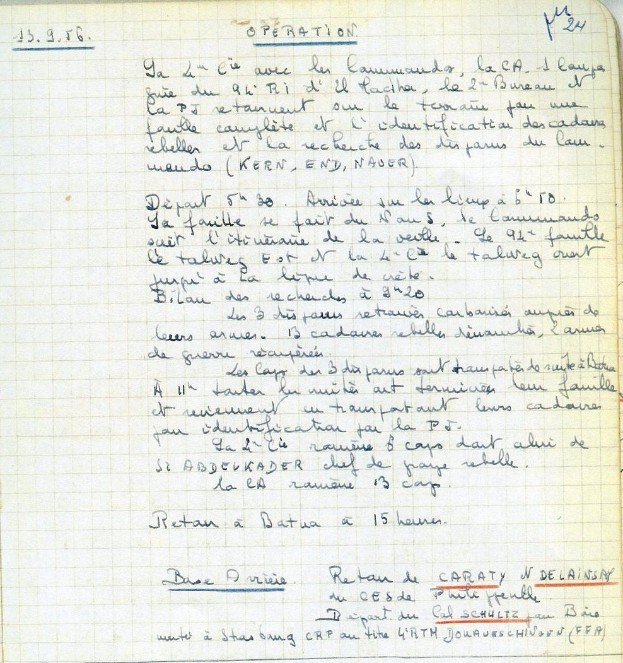 13.9.56. OPERATION
24
La 4me Cie avec les Commandos, la CA, 1 Compa
gnie du 94e RI d'El Maciha, le 2me Bureau et
la PJ retournent sur le terrain pour une
fouille complète et l'identification des cadavres
rebelles et la recherche des disparus du Com-
mando (KERN, END, NAUER).
Départ 5h30. Arrivée sur les lieux à 6h50.
La fouille se fait du N au S, le Commando
suit l'itinéraire de la veille. Le 94me fouille
le talweg EST et la 4me Cie le talweg ouest
jusqu'à la ligne de crête.
Bilan des recherches à 9h20
Les 3 disparus retrouvés carbonisés auprès de
leurs armes. 13 cadavres rebelles dénombrés, 2 armes
de guerre récupérées.
Les Corps des 3 disparus sont transportés de suite à Batna
À 11h toutes les unités ont terminées leur fouille
et reviennent en transportant leurs cadavres
pour identification par la PJ.
La 4me Cie ramène 6 corps dont celui de
SI ABDELKADER chef de groupe rebelle.
la CA ramène 13 corps.
Retour à Batna à 15 heures.
Base Arrière. Retour de CARATY et DELAINSAY
du CES de Philippeville.
Départ du Cal SCHULTZ pour
à Strasbourg CAP au titre 4e RTM DONAUESCHINGEN (FFA)